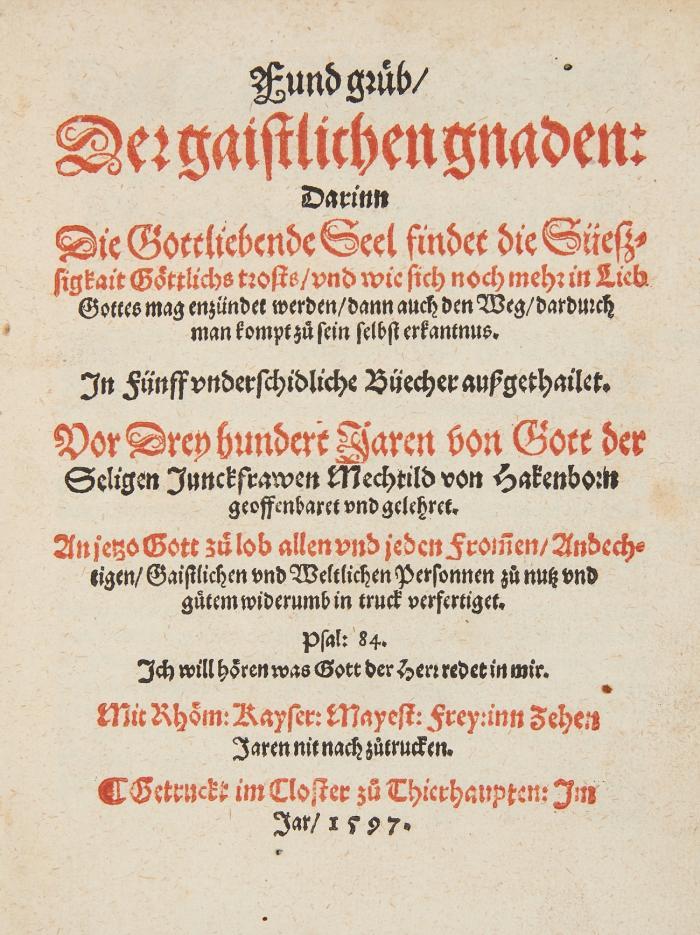 Fund grůb/
Der gaistlichen gnaden:
Darinn
Die Gottliebende Seel findet die Süesz-
sigkait Göttlichs trosts/vnd wie sich noch mehr in Lieb
Gottes mag enzündet werden/dann auch den Weg/dardurch
man kompt zů sein selbst erkantnus.
In Fünff vnderschidliche Büecher außgethailet.
Vor Drey hundert Jaren von Gott der
Seligen Junckfrawen Mechtild von Hakenborn
geoffenbaret vnd gelehret.
An jetzo Gott zů lob allen vnd jeden From̃en/Andech-
tigen/Gaistlichen vnd Weltlichen Personnen zů nutz vnd
gůtem widerumb in truck verfertiget.
Psal: 84.
Ich will hören was Gott der Herr redet in mir.
Mit Rhöm: Kayser: Mayest: Frey: inn Zehen
Jaren nit nach zůtrucken.
¶ Getruckt im Closter zů Thierhaupten: Im
Jar/ 1597.